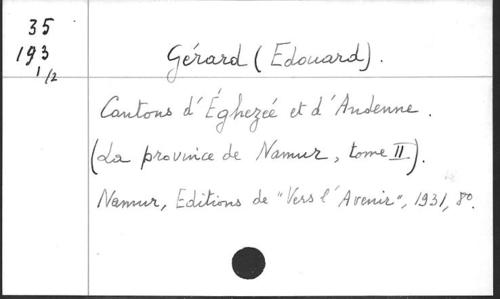 35
193
1/2
Gérard (Edouard).
Cantons d'Éghezéé et d'Andenne.
(La province de Namur, tome II).
Namur, Editions de "Vers l'Avenir", 1931, 8º.